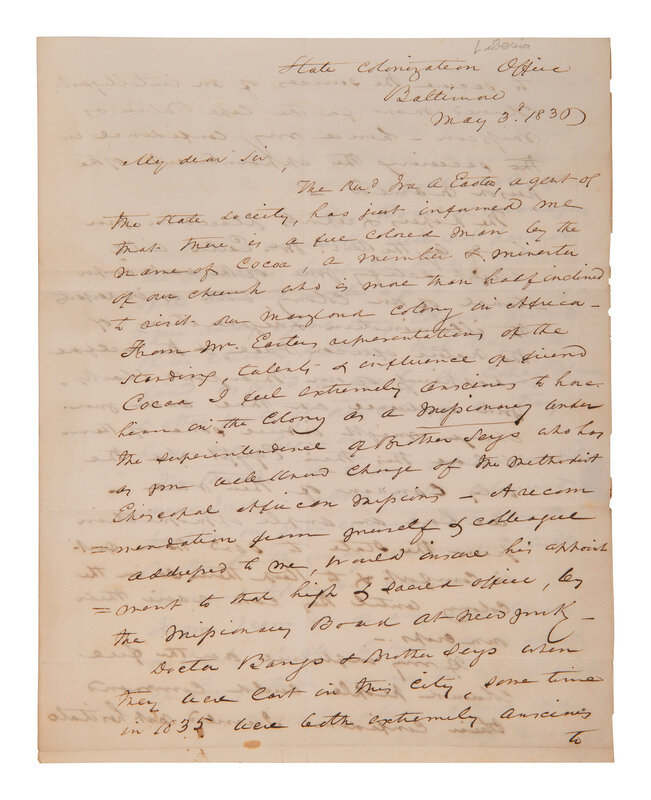 Liberia
State Colonization Office
Baltimore
May 3d. 1836
My dear Sir,
The Revd. Ira A Easter, agent of
the State Society, has just informed me
that there is a free colored man by the
name of Cocoa, a member & minister
of our church who is more than half inclined
to visit our Maryland Colony in Africa -
From Mr. Easters representations of the
standing, talents & influence of friend
Cocoa I feel extremely anxious to have
him in the Colony as a Missionary under
the superintendence of Brother Seys who has
as you well know charge of the Methodist
Episcopal African Missions - A recom
=mendation from yourself & colleague
addressed to me, would insure his appoint
=ment to that high & sacred office, by
the Missionary Board at New York -
Doctor Bangs & Brother Seys when
they were last in this city, some time
in 1835 were both extremely anxious
to